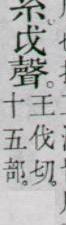 糸戉聲。
王伐切。
十五部。